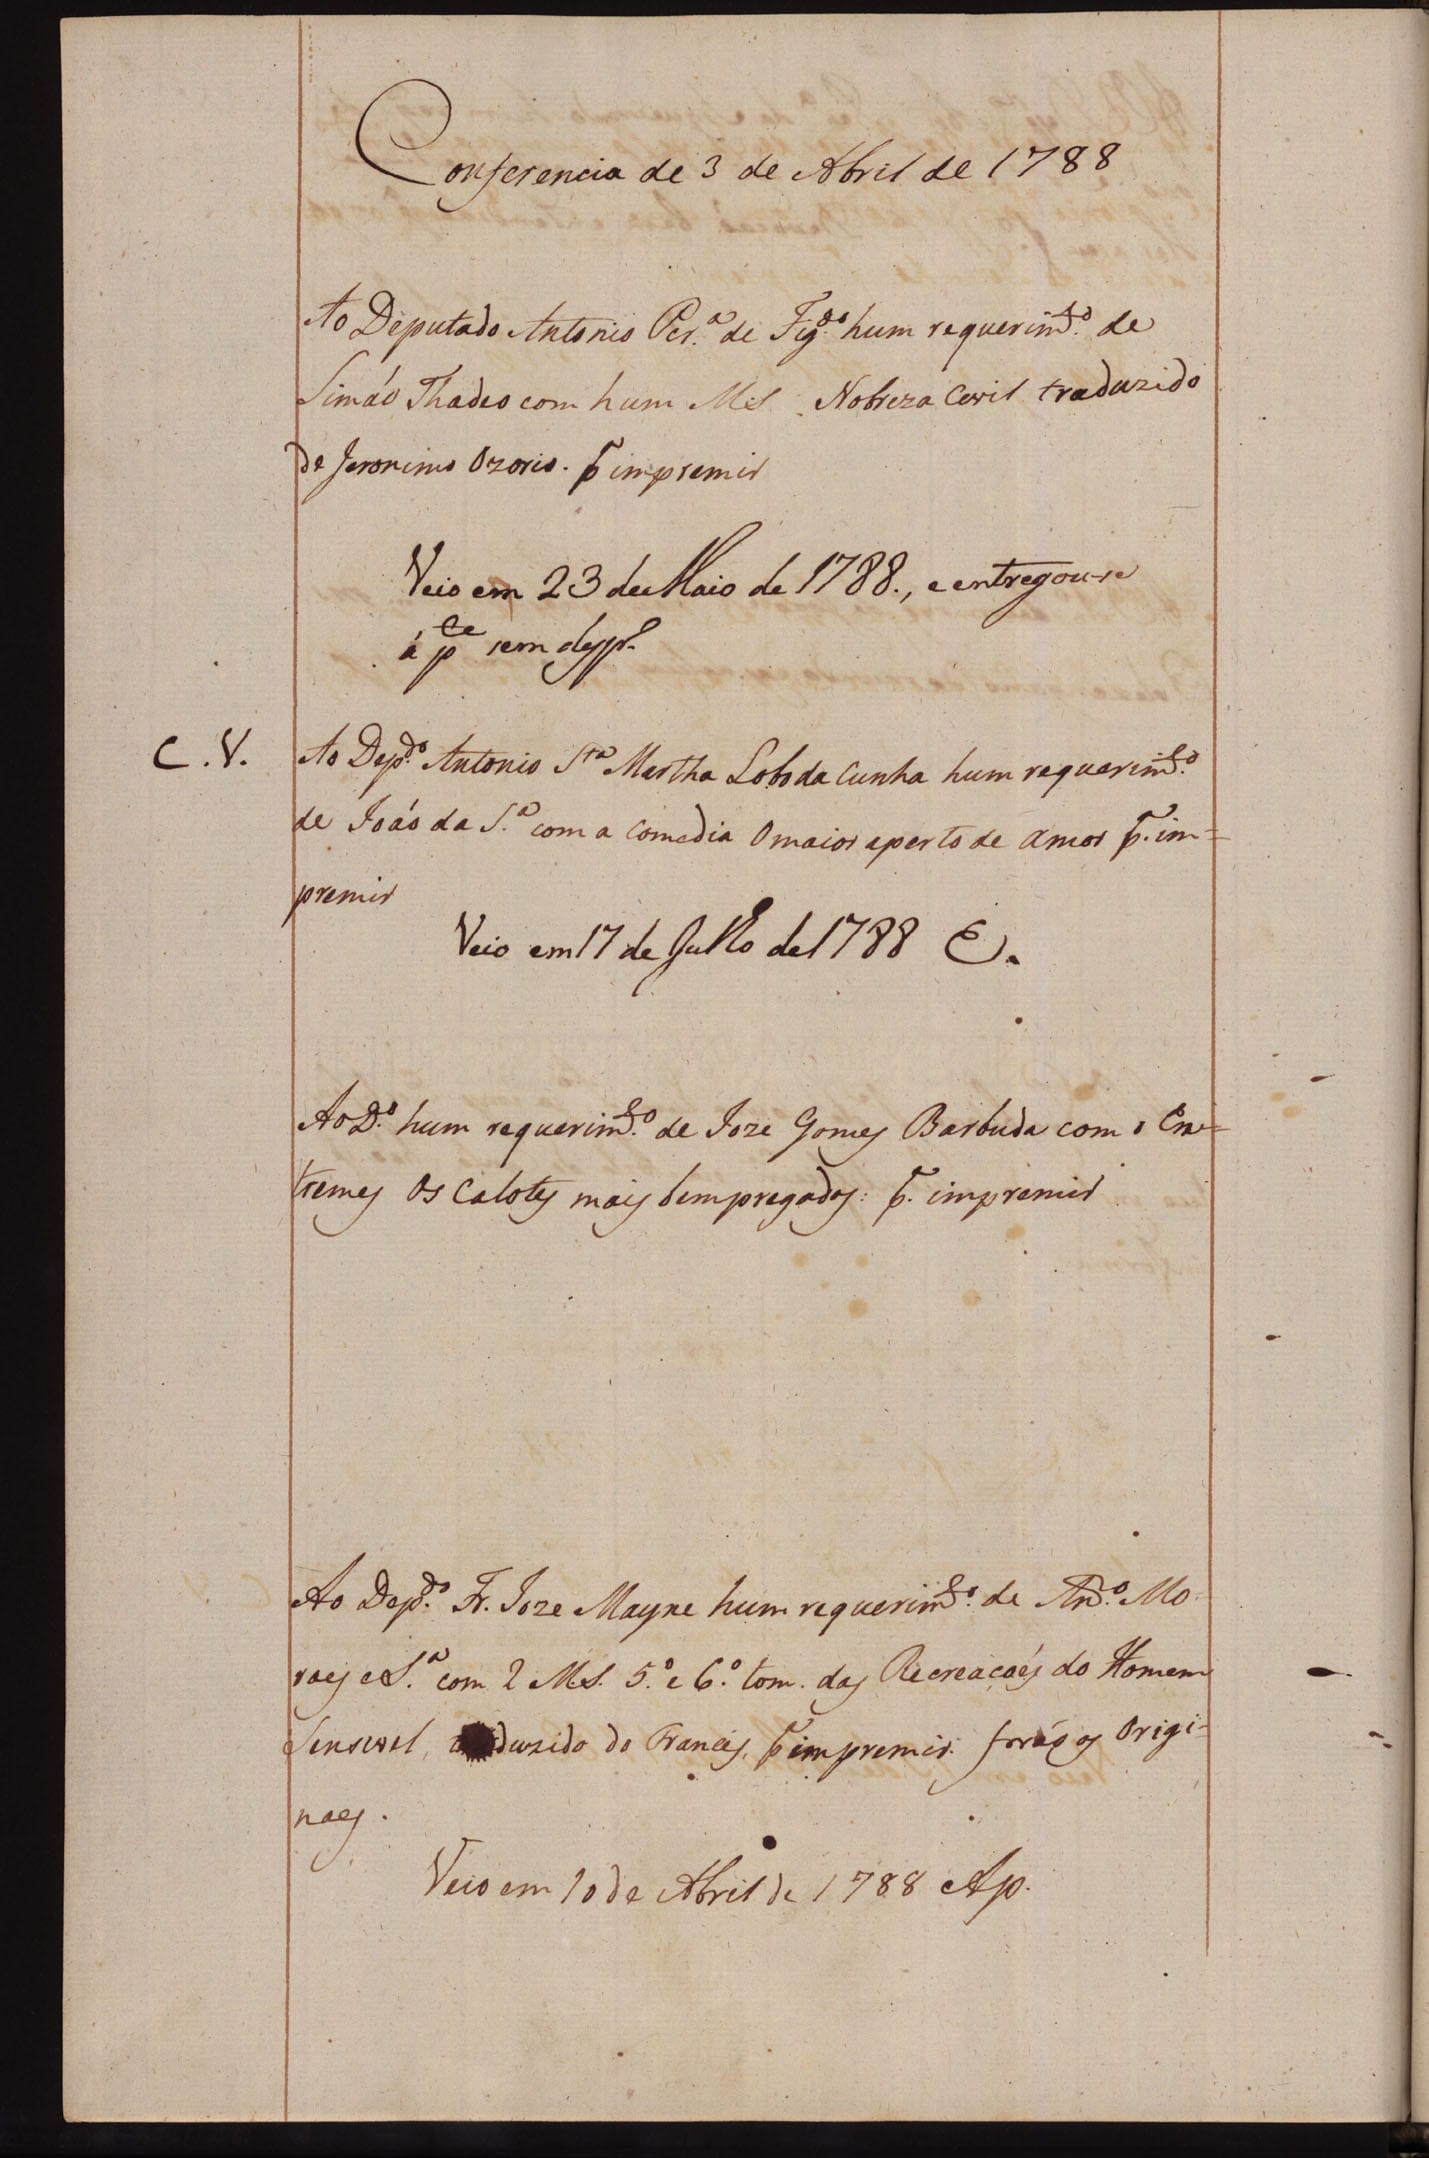 Conferencia de 3 de Abril de 1788
Ao Deputado Antonio Per.ª de Fig.do hum requerim.to de
Simáo Thadeo com hum Ms. Nobreza Cevil traduzido
de Jeronimo Ozorio. p.ª impremir
Veio em 23 de Maio de 1788., e entregou-se
á p.te sem desp.º
C.V.
Ao Dep.do Antonio S.ta Martha Lobo da Cunha hum requerim.to
de Joáo da S.ª com a Comedia O maior aperto de amor p.ª im=
premir
Veio em 17 de Julho de 1788 E.
Ao D.º hum requerim.to de Joze Gomes Barbuda com o En=
tremes Os Calotes mais bempregados: p.ª impremir
Ao Dep.do Fr. Joze Mayne hum requerim.to de An.to Mo-
raes e S.ª com 2 Ms. 5.º e 6.º tom. das Recreacaẽs do Homem
Sensivel, traduzido do Frances, p.ª impremir. foráo os Origi-
naes.
Veio em 10 de Abril de 1788 Ap.